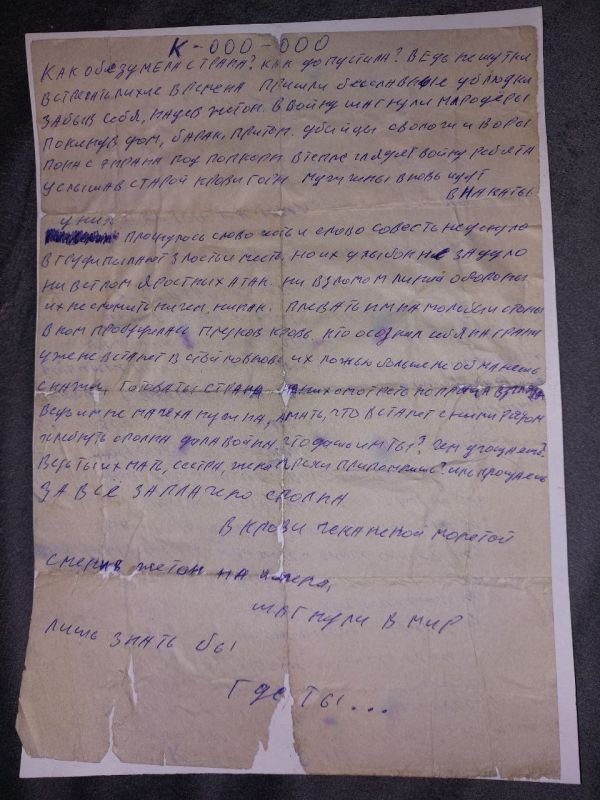 К-000-000
КАК ОбезУМЕЛА СТРАНА? КАК допустила? ВЕДЬ не шутки
встречать лихие времена пришли бесславные ублюдки
ЗАбыв себя, надев жетон. в войну шагнули мародёры
покинув дом, барак, притон. убийцы сволочи и воры
пока с экрана под попкорн в тепле глядят войну ребята
услышав старой крови горн мужчины вновь идут
в накаты
у них
проснулось слово честь и слово совесть не уснуло
в груди пылают злость и месть, но их улыбок не задуло
ни ветром яростных атак. ни взломом линий обороны
их не сломить ничем, никак. плевать им на мольбы и стоны
в ком пробудилась предков кровь, кто осознал себя на грани
уже не встанет в стойло вновь их ложью больше не обманешь
скажи, готова ты страна них смотреть не пряча взгляда
ведь им не мачеха нужна, а мать, что встанет с ними рядом
хлебнуть сполна дала война, что дашь им ты? чем угощаешь?
ведь ты их мать, сестра, жена грехи припомнишь? иль прощаешь
ЗА ВСЁ ЗАПЛАЧЕНО сполна
в крови чеканной монетой
сменив жетон на
шагнули в мир
лишь знать бы
где ты...